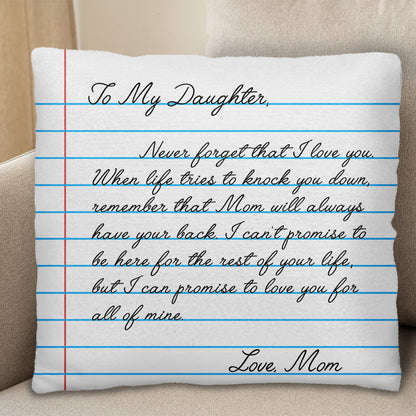 To My Daughter,
Never forget that I love you.
When life tries to knock you down,
remember that Mom will always
have your back. I can't promise to
be here for the rest of your life,
but I can promise to love you for
all of mine.
Love, Mom